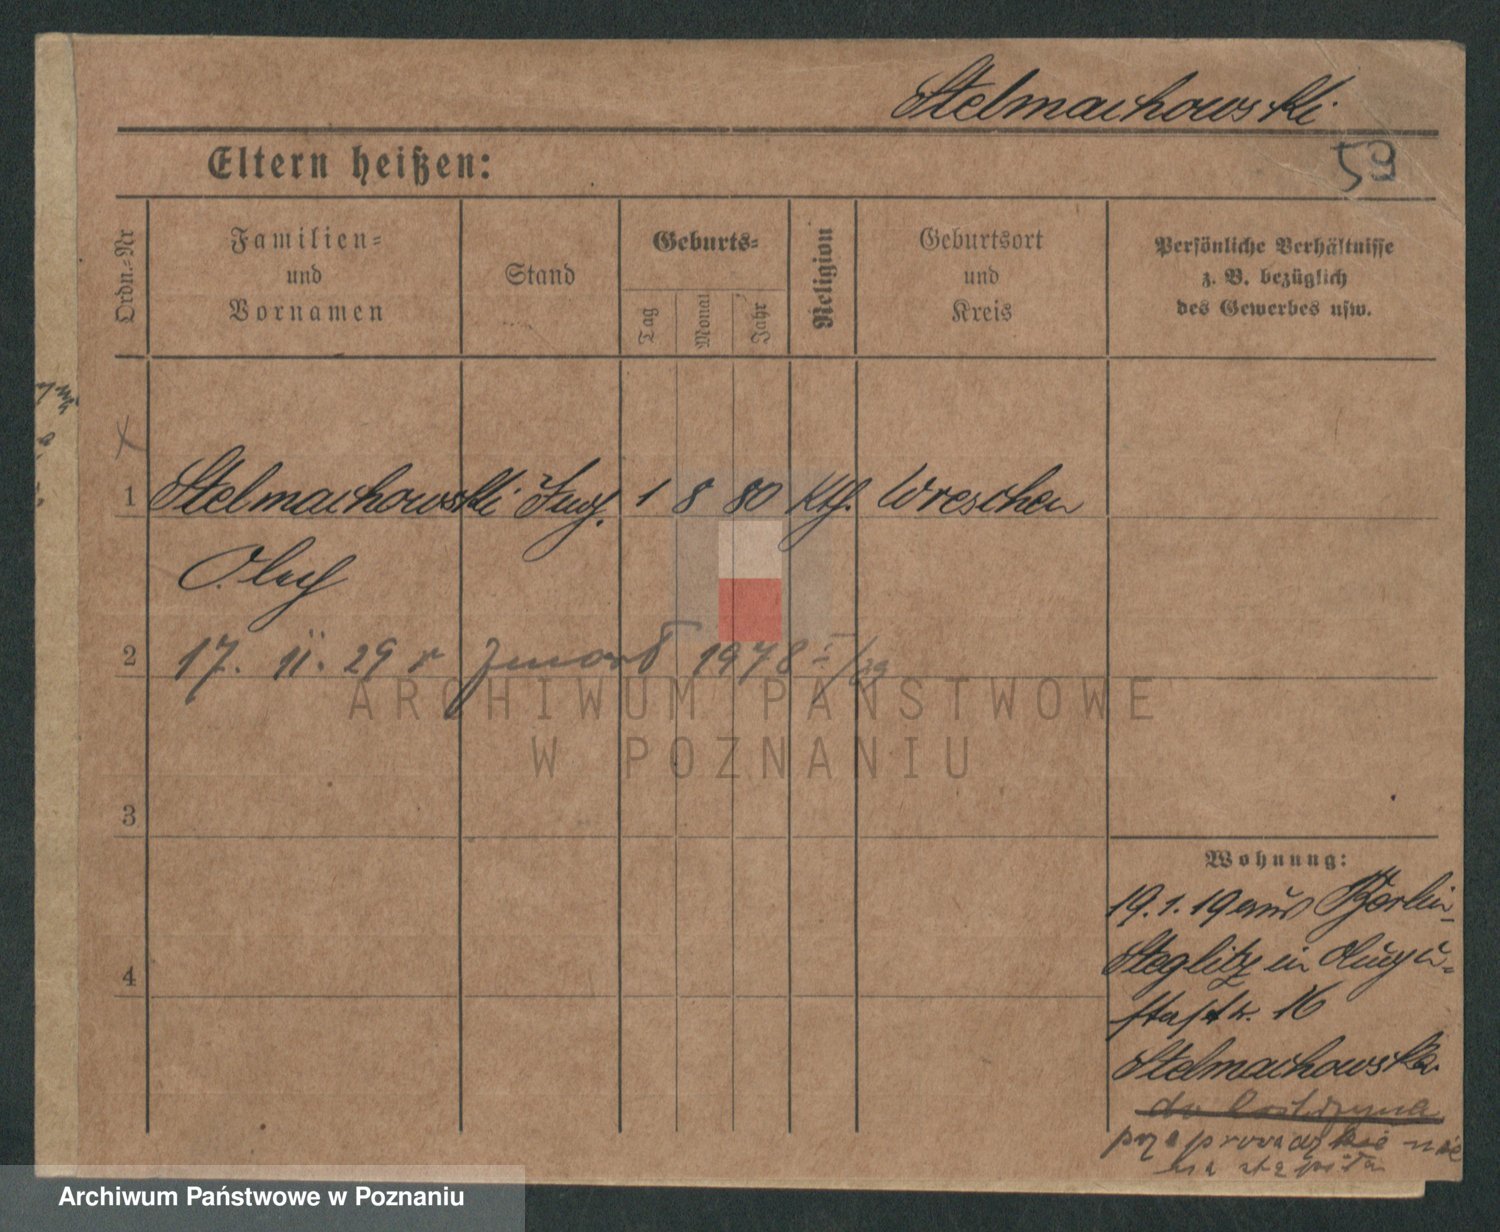 Stelmachowski
59
Eltern heißen:
Ordn.-Nr
Familien-
und
Vornamen
Stand
Geburts-
Tag
Monat
Jahr
Religion
Geburtsort
und
Kreis
Persönliche Verhältnisse
z. B. bezüglich
des Gewerbes usw.
1 Stelmachowski 1 8 80 Kth. Wreschen
2 17. 11. 29 r zmarł 1948
ARCHIWUM PAŃSTWOWE
W POZNANIU
3
4
Wohnung:
19.1.19 aus Berlin-
Steglitz in Augu-
stastr. 16
Stelmachowska
do
przeprowadzka nie
nastąpiła
Archiwum Państwowe w Poznaniu